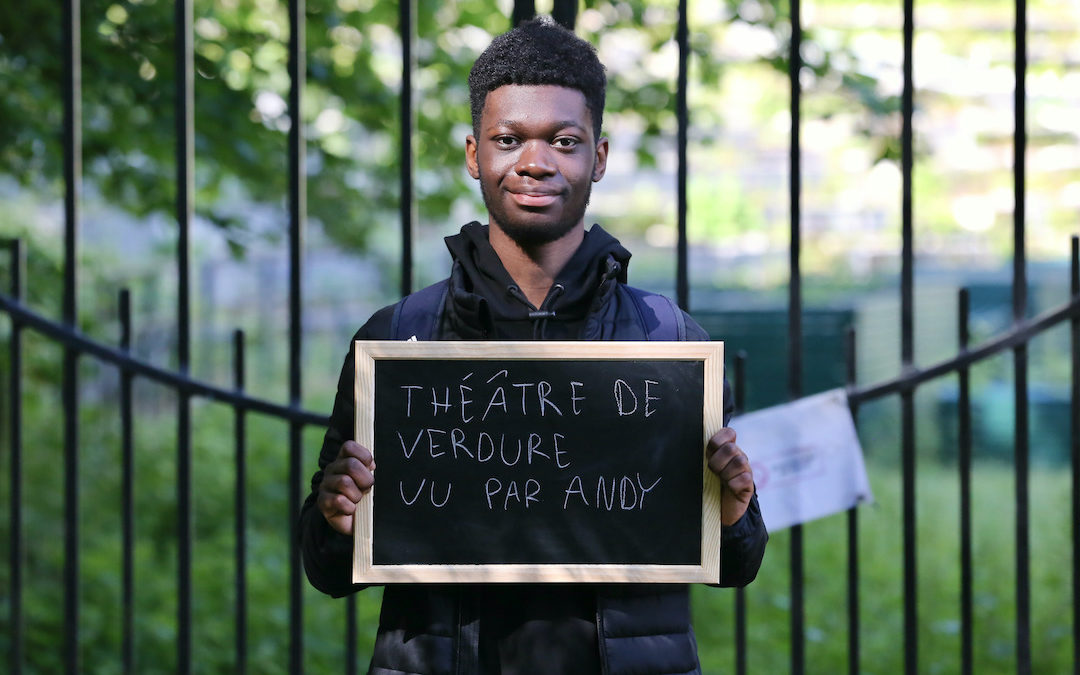 THÉÂTRE DE
VERDURE
VU PAR ANDY